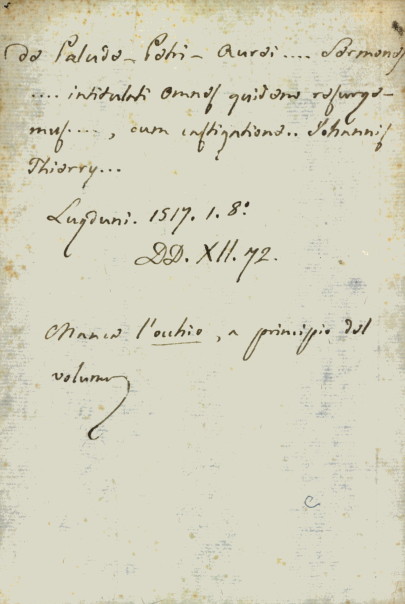 de Palude - Petri - Aurei .... Sermones
.... intitulati Omnes quidem resurge-
mus ...., cum castigatione .. Johannis
Thierry...
Lugduni. 1517. 1. 8°.
DD. XII. 72.
Manca l'occhio, a principio del
volume